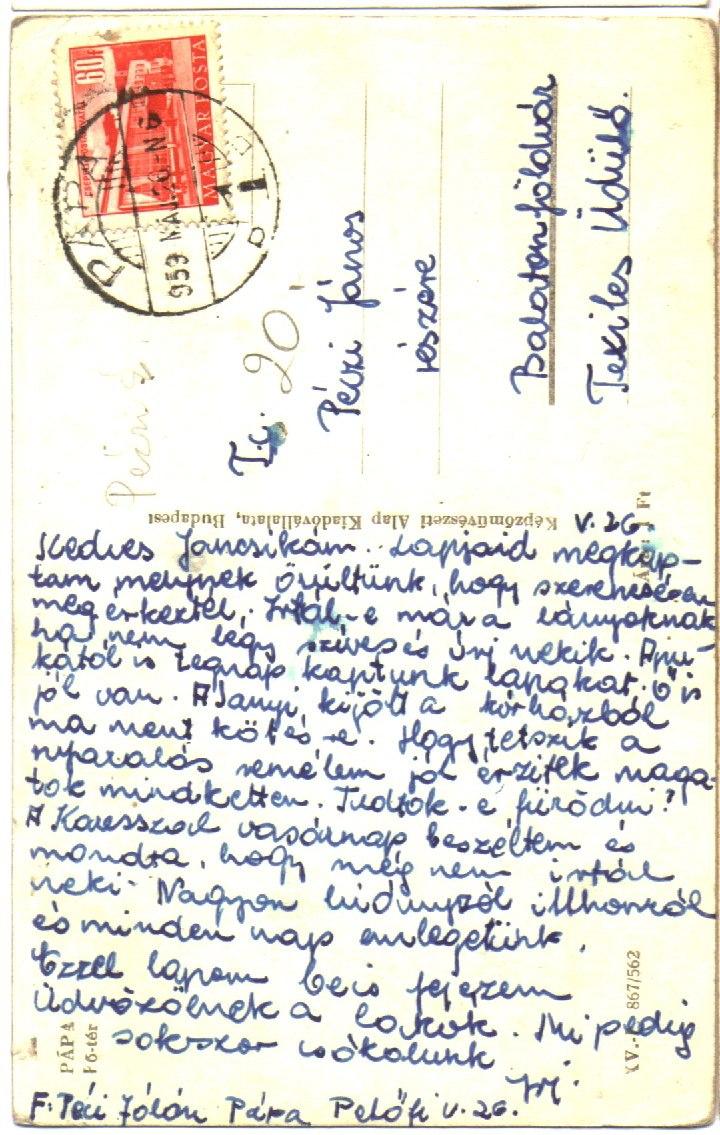 60f
MAGYAR POSTA
PÁPA
959 MÁJ. 26-N 6
1
T.c. 20
Péczi János
részére
Balatonföldvár
Texiles Üdülő.
Képzőművészeti Alap Kiadóvállalata, Budapest
Ft
V. 26.
Kedves Jancsikám. Lapjaid megkap-
tam melynek örültünk, hogy szerencsésen
megérkeztél. Irtál-e már a lányoknak
ha nem légy szíves és írj nekik. Apu-
kától is tegnap kaptunk lapokat. Ő is
jól van. A Sanyi kijött a kórházból
ma ment
nyaralás remélem jól érzitek maga-
tok mindketten. Tudtok-e fürödni?
A vasárnap beszéltem és
mondta, hogy még nem irtál
neki. Nagyon hiányzol itthonról
és minden nap emlegetünk.
Ezzel lapom be is fejezem
Üdvözölnek a lakók. Mi pedig
sokszor csókolunk
F: Péczi Jolán Pápa Petőfi V. 26.
PÁPA
Fő-tér
XV.- 867/562